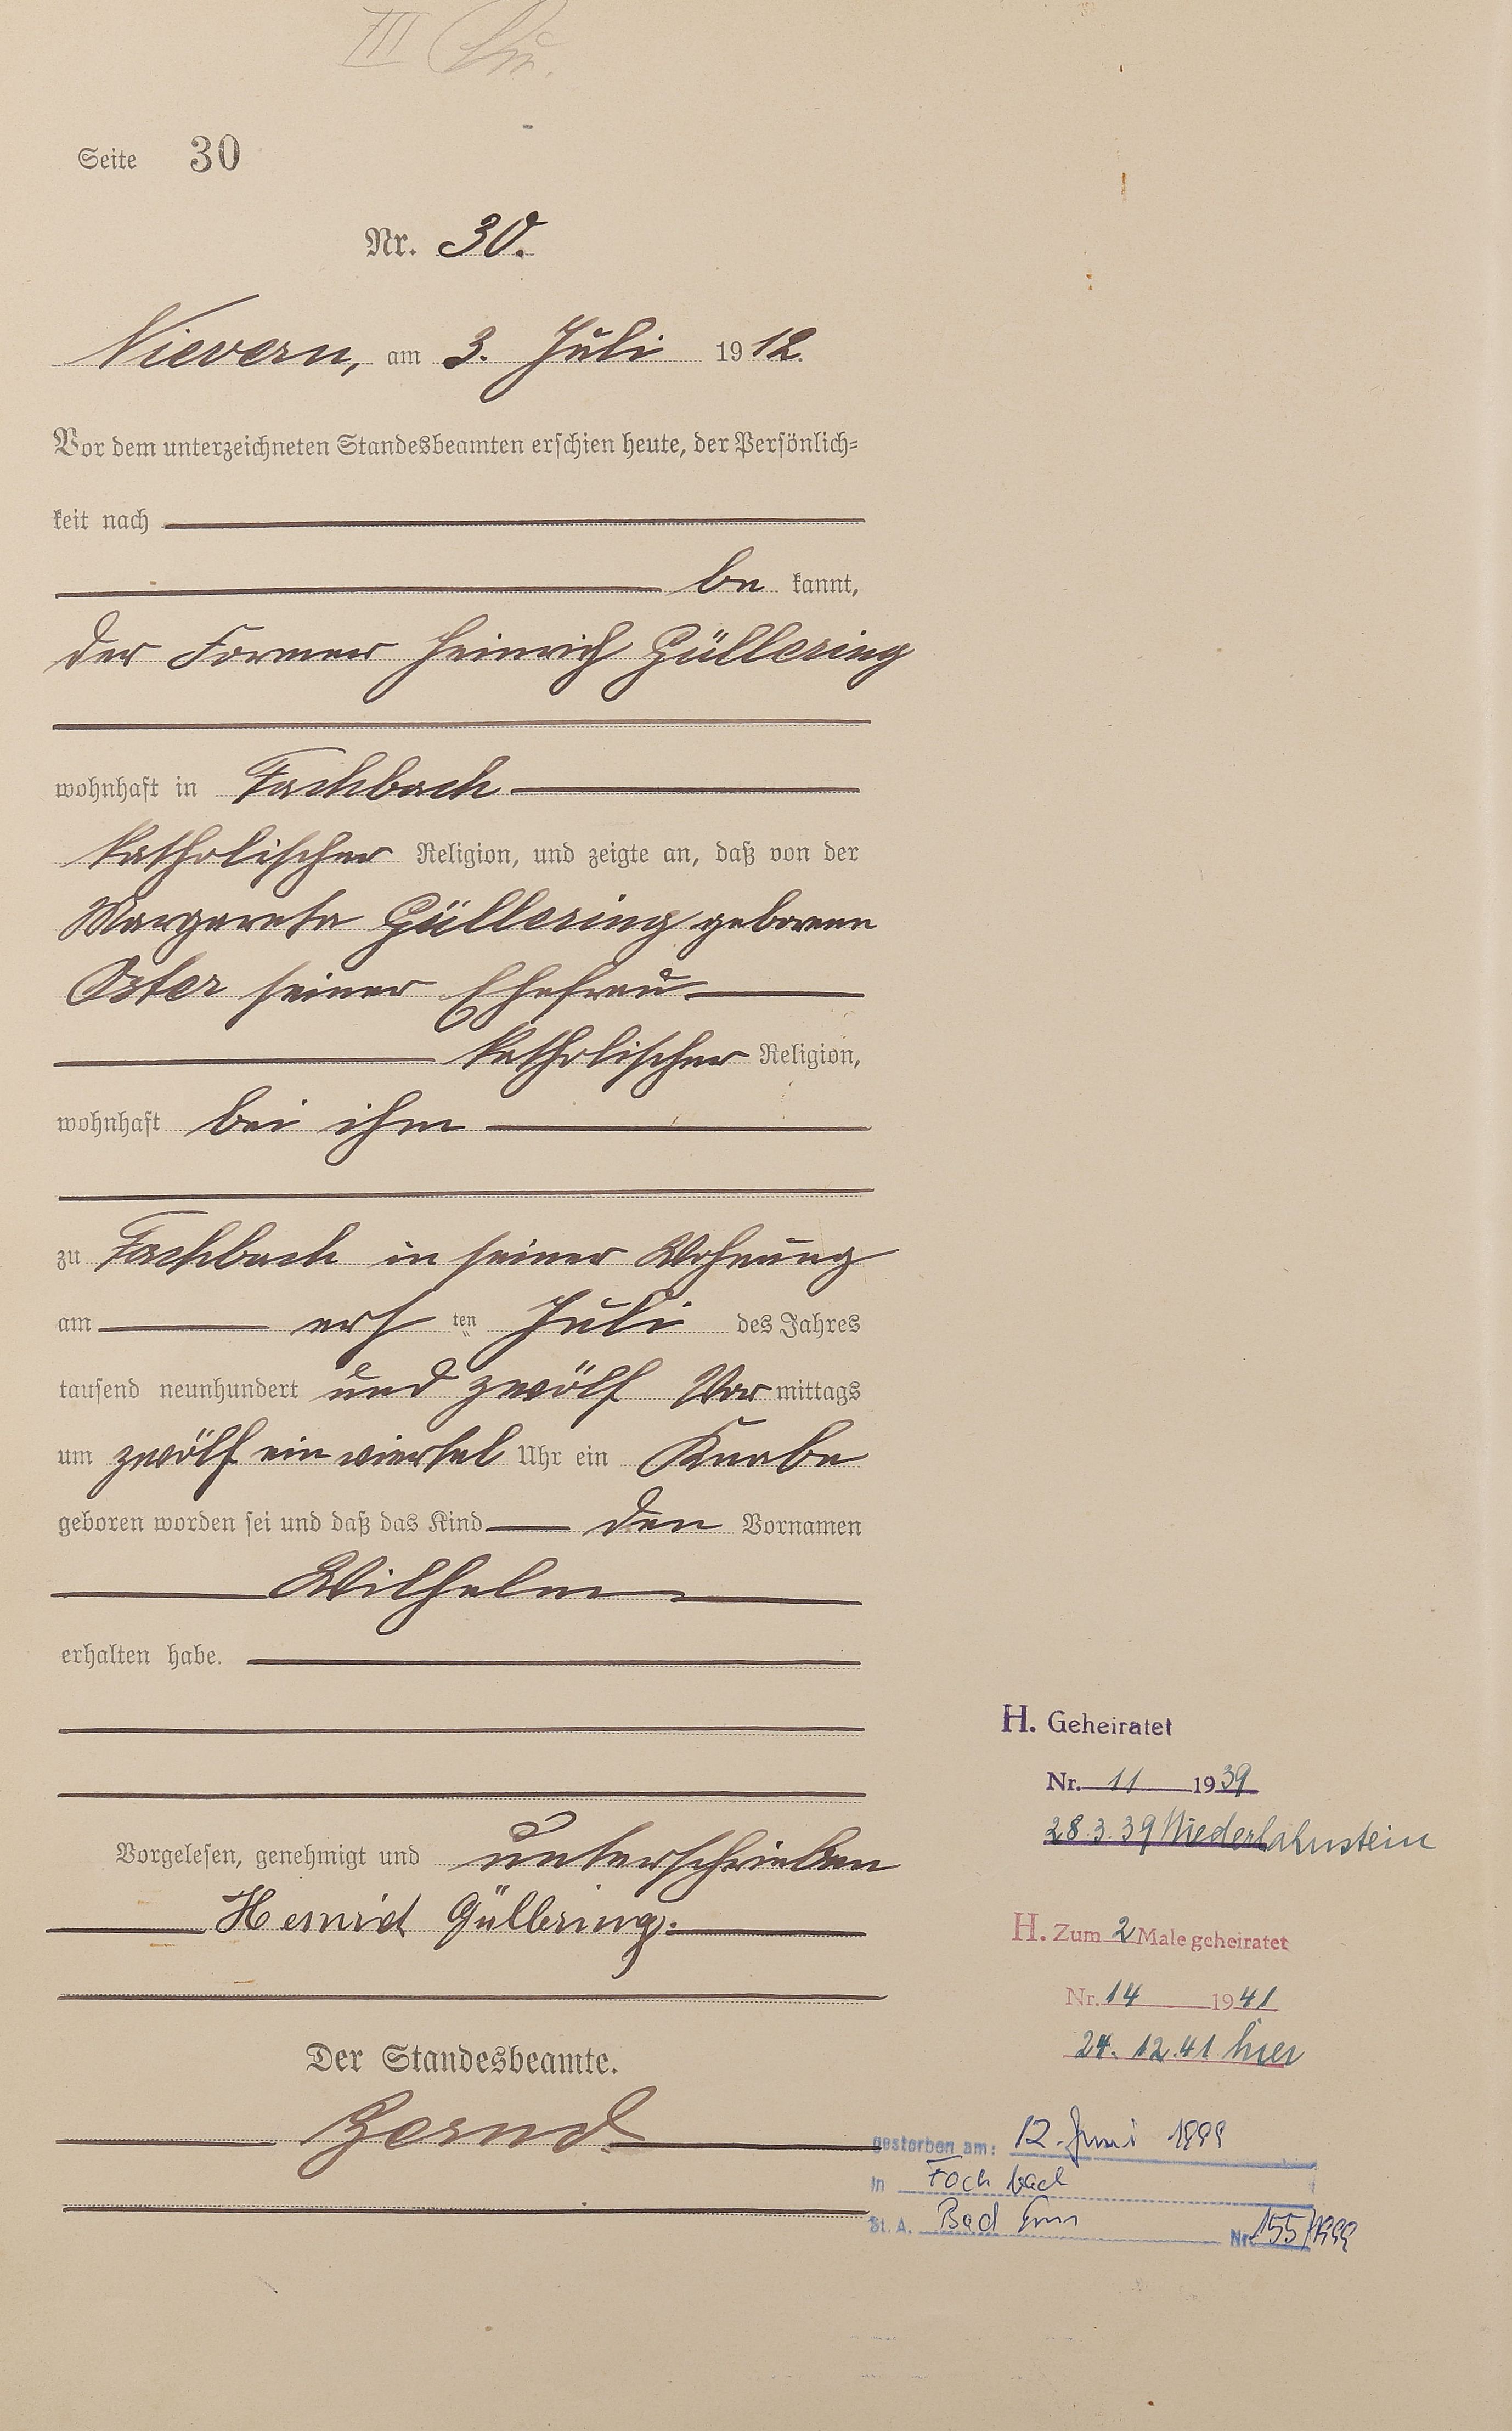 III
Seite 30
Nr. 30.
Nievern, am 3. Juli 1912.
Vor dem unterzeichneten Standesbeamten erschien heute, der Persönlich-
keit nach
be kannt,
der Former Heinrich Güllering
wohnhaft in Fachbach
katholischer Religion, und zeigte an, daß von der
Margareta Güllering geborene
Oster seiner Ehefrau
katholischer Religion,
wohnhaft bei ihm
zu Fachbach in seiner Wohnung
am ersten Juli des Jahres
tausend neunhundert und zwölf Vormittags
um zwölf ein viertel Uhr ein Knabe
geboren worden sei und daß das Kind den Vornamen
Wilhelm
erhalten habe.
Vorgelesen, genehmigt und unterschrieben
Heinrich Güllering.
Der Standesbeamte.
H. Geheiratet
Nr. 11 1939
28.3.39 Niederlahnstein
H. Zum 2 Male geheiratet
Nr. 14 1941
24.12.41 hier
gestorben am: 12. Juni 1999
In Fachbach
St. A. Bad Ems Nr. 155/1999